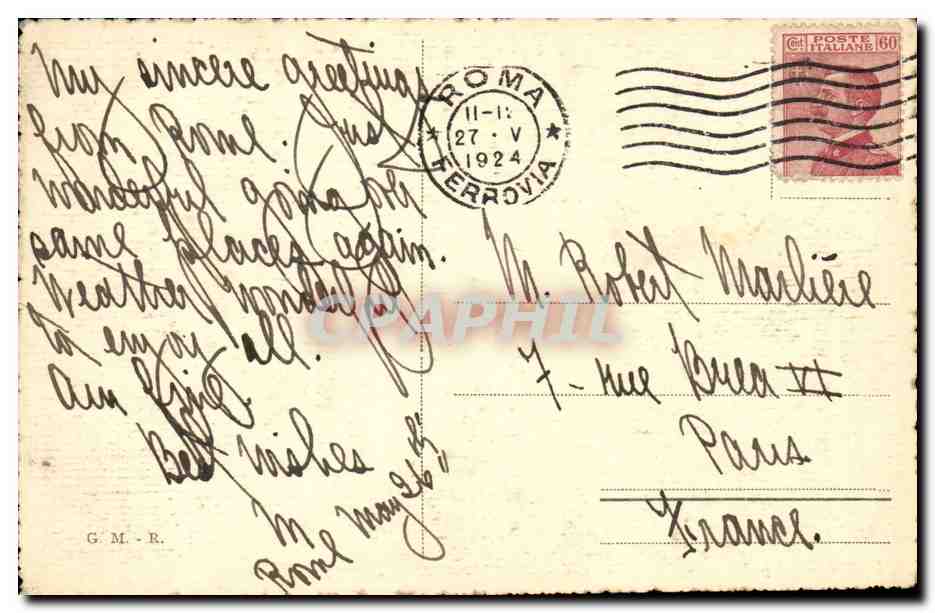 My sincere greetings
from Rome. Just
wonderful going over
same places again.
Weather wonderful
to enjoy all.
Am fine.
Best wishes
M
Rome May 26"
G. M. - R.
ROMA
11-1
27 · V
1924
FERROVIA
Cent. POSTE ITALIANE 60
M. Robert Marlière
7 - rue Brea VI
Paris.
France.
CPAPHIL